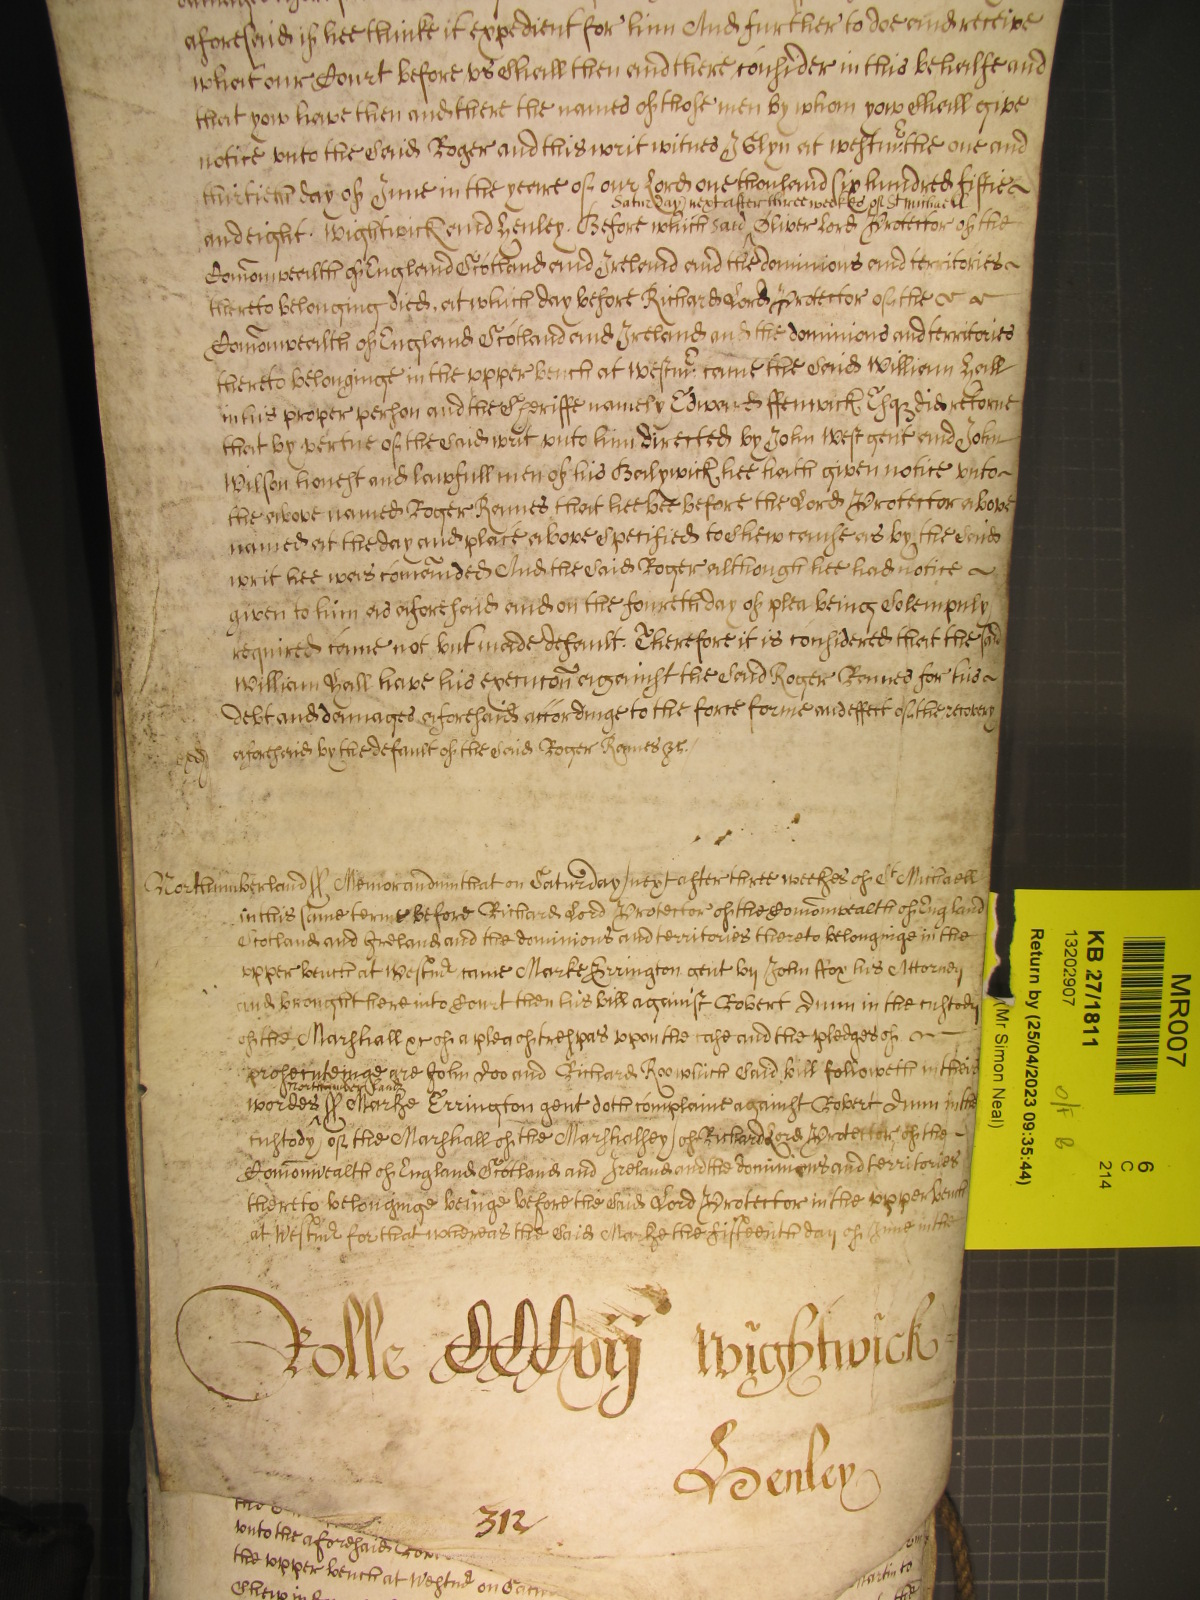 aforesaid if hee thinke it expedient for him And further to doe and receive
what our Court before vs Shall then and there consider in this behalfe and
that yow have then and there the names of those men by whom yow Shall give
notice vnto the Said Roger and this writ witnes J Glyn at westmr the one and
thirtieth day of June in the yeare of our Lord one thousand six hundred fiftie
Saturday next after three weekes of St Michaell
and eight. Wightwick and Henley. Before which said Oliver Lord Protector of the
Comonwealth of England Scotland and Ireland and the dominions and territories
thereto belonging died, at which day before Richard Lord Protector of the
Comonwealth of England Scotland and Ireland and the dominions and territories
thereto belonginge in the vpper bench at Westmr came the Said William Hall
in his proper person and the Sheriffe namely Edward ffenwick Esqr did retorne
that by vertue of the Said writ vnto him directed by John West gent and John
Wilson honest and lawfull men of his Bailywick hee hath given notice vnto
the above named Roger Raines that hee bee before the Lord Protector above
named at the day and place above Specified to Shew cause as by the Said
writ hee was comaunded And the Said Roger although hee had notice
given to him as aforesaid and on the foureth day of plea being Solempnly
required came not but made default. Therefore it is considered that the said
William Hall have his execucon against the Said Roger Raines for his
Debt and damages aforesaid accordinge to the force forme and effect of the recovery
aforesaid by the default of the Said Roger Raines &c.
Northumberland ss Memorandum that on Saturday next after three weekes of St Michaell
in this same terme before Richard Lord Protector of the Comonwealth of England
Scotland and Ireland and the dominions and territories thereto belonginge in the
vpper bench at Westmr came Marke Errington gent by John ffox his Attorney
and brought here into Court then his bill against Robert Dunn in the custody
of the Marshall &c of a plea of trespas vpon the case and the pledges of
prosecuteinge are John Doo and Richard Roo which Said bill followeth in theis
Northumberland
wordes ss Marke Errington gent doth complaine against Robert Dunn in the
custody of the Marshall of the Marshalsey of Richard Lord Protector of the
Comonwealth of England Scotland and Ireland and the dominions and territories
thereto belonginge beinge before the Said Lord Protector in the vpper bench
at Westmr for that whereas the Said Marke the fifteenth day of June in the
Rolle CCCvij Wightwick
Henley
312
vnto the aforesaid
the vpper bench at Westmr on Satur
Shew
Martin to
MR007
KB 27/1811
13202907
Return by (25/04/2023 09:35:44)
(Mr Simon Neal)
6
C
214